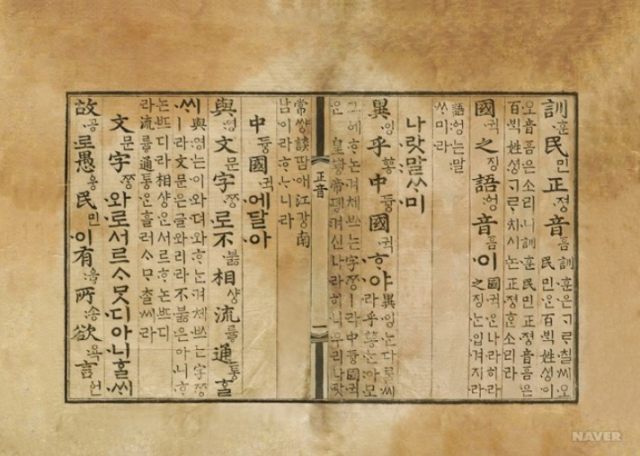 訓훈民민正졍音흠 訓훈은ᄀᆞᄅᆞ칠씨오
民민ᄋᆞᆫ百ᄇᆡᆨ姓셩이
오音흠은소리니訓훈民민正졍音흠은
百ᄇᆡᆨ姓셩ᄀᆞᄅᆞ치시논正졍ᄒᆞᆫ소리라
國귁之징語ᅌᅥᆼ音흠이 國귁ᄋᆞᆫ나라히라
之징ᄂᆞᆫ입겨지라
語ᅌᅥᆼ는말
ᄊᆞ미라
나랏말ᄊᆞ미
異잉乎ᅘᅩᆼ中듕國귁ᄒᆞ야 異잉ᄂᆞᆫ다ᄅᆞᆯ씨
라乎ᅘᅩᆼᄂᆞᆫ아모
그ᅌᅦᄒᆞ논겨체ᄡᅳ는字ᄍᆞᆼㅣ라中듕國귁
은皇ᅘᅪᆼ帝뎽겨신나라히니우리나랏
正音
二
常썅談땀애江강南
남이라ᄒᆞᄂᆞ니라
中듕國귁에달아
與영文문字ᄍᆞᆼ로不붏相샹流륳通통ᄒᆞᆯ
ᄊᆡ 與영는이와뎌와ᄒᆞ는겨체ᄡᅳ는字ᄍᆞᆼ
ㅣ라文문은글와리라不붏은아니ᄒᆞ
논ᄠᅳ디라相샹ᄋᆞᆫ서르ᄒᆞ논ᄠᅳ디
라流륳通통ᄋᆞᆫ흘러ᄉᆞᄆᆞᄎᆞᆯ씨라
文문字ᄍᆞᆼ와로서르ᄉᆞᄆᆞᆺ디아니ᄒᆞᆯᄊᆡ
故공로愚웅民민이有ᅌᅮᇢ所송欲욕言언
NAVER